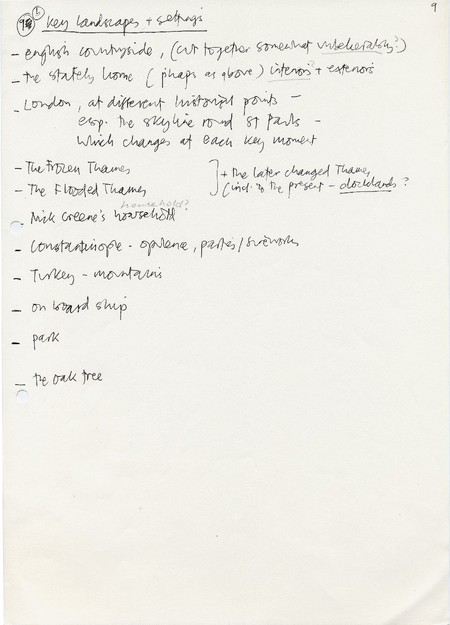 9
9 b key landscapes + settings
- english countryside, (cut together somewhat unbelievably?)
- the stately home (phaps as above) interiors? + exteriors
- London, at different historical points -
esp. the skyline round St Pauls -
which changes at each key moment
- The Frozen Thames
- The Flooded Thames
] + the later changed Thames
(incl. to the present - docklands?
household?
- Nick Greene's household
- Constantinople - opulence, parties/fireworks
- Turkey - mountains
- on board ship
- park
- the oak tree